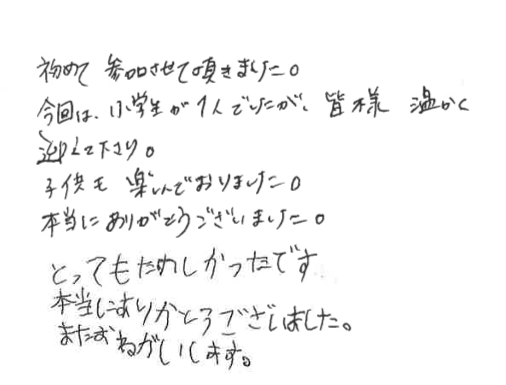 初めて 参加させて頂きました。
今回は、小学生が1人でしたが、皆様 温かく
迎えて下さり。
子供も 楽しんでおりました。
本当にありがとうございました。
とってもたのしかったです
本当にありがとうございました。
またおねがいします。